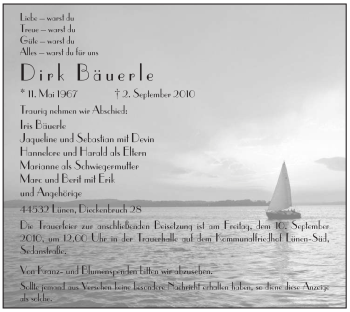 Liebe – warst du
Treue – warst du
Güte – warst du
Alles – warst du für uns
Dirk Bäuerle
* 11. Mai 1967 † 2. September 2010
Traurig nehmen wir Abschied:
Iris Bäuerle
Jaqueline und Sebastian mit Devin
Hannelore und Harald als Eltern
Marianne als Schwiegermutter
Marc und Berit mit Erik
und Angehörige
44532 Lünen, Dieckenbruch 28
Die Trauerfeier zur anschließenden Beisetzung ist am Freitag, dem 10. September
2010, um 12.00 Uhr in der Trauerhalle auf dem Kommunalfriedhof Lünen-Süd,
Sedanstraße.
Von Kranz- und Blumenspenden bitten wir abzusehen.
Sollte jemand aus Versehen keine besondere Nachricht erhalten haben, so diene diese Anzeige
als solche.